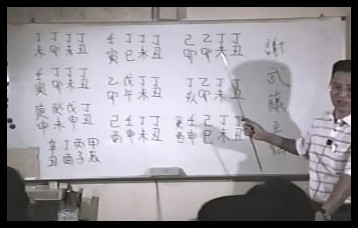 丁丁丁丁 壬丁丁丁 己乙丁丁
未卯未丑 寅巳未丑 卯卯未丑
壬丁丁丁 乙戊丁丁 丁乙丁丁
寅卯未丑 卯午未丑 亥卯未丑
戊丁 己壬丁丁 壬乙丁
申丑 酉申未丑 申巳丑
辛丁丙甲
丑酉子辰
謝武藤